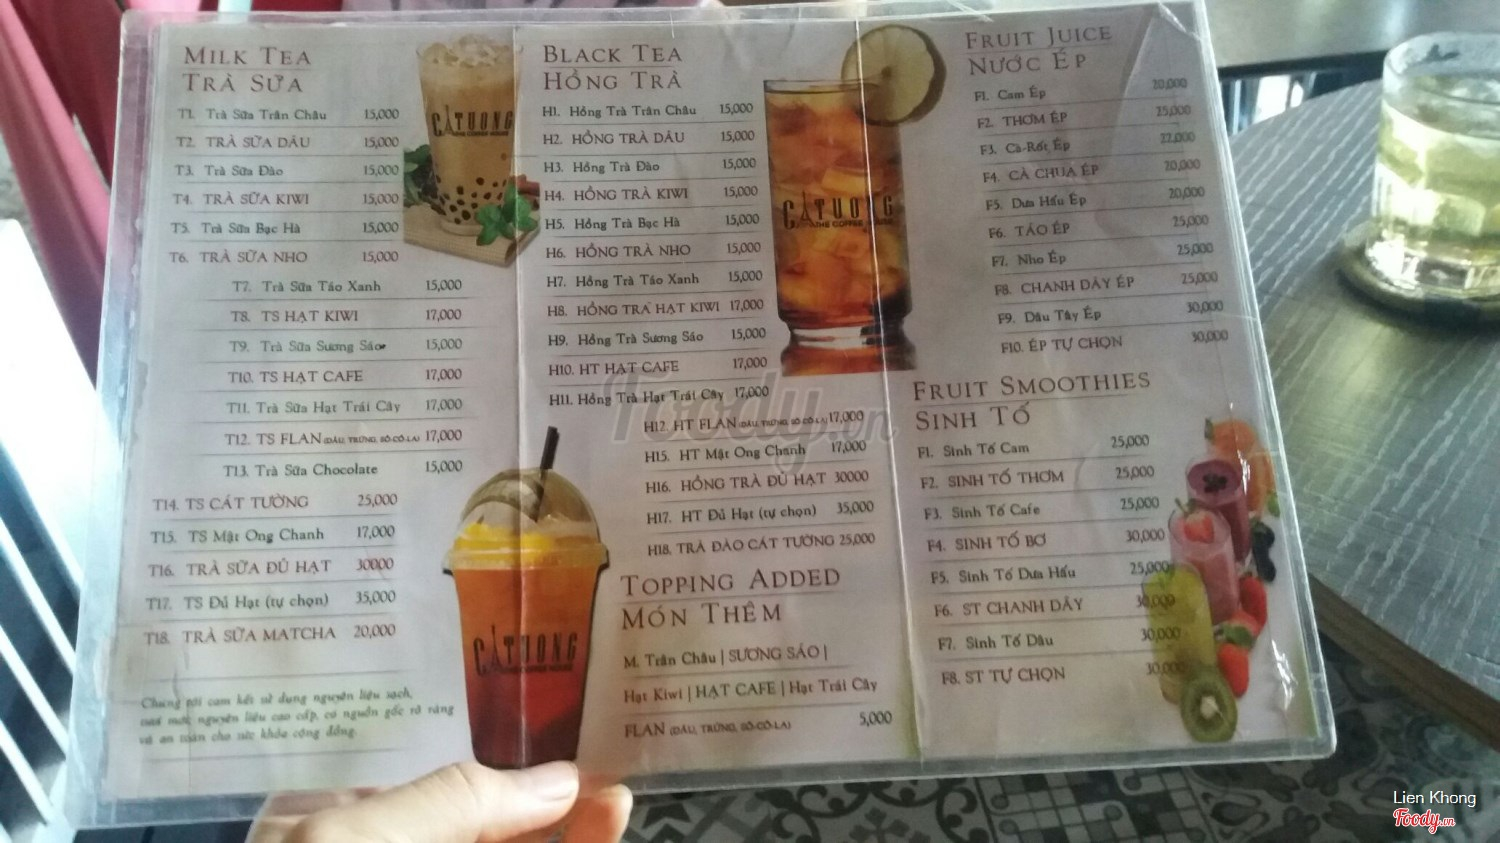 MILK TEA
TRÀ SỮA
T1. Trà Sữa Trân Châu 15,000
T2. TRÀ SỮA DÂU 15,000
T3. Trà Sữa Đào 15,000
T4. TRÀ SỮA KIWI 15,000
T5. Trà Sữa Bạc Hà 15,000
T6. TRÀ SỮA NHO 15,000
T7. Trà Sữa Táo Xanh 15,000
T8. TS HẠT KIWI 17,000
T9. Trà Sữa Sương Sáo 15,000
T10. TS HẠT CAFE 17,000
T11. Trà Sữa Hạt Trái Cây 17,000
T12. TS FLAN (DÂU, TRỨNG, SÔ-CÔ-LA) 17,000
T13. Trà Sữa Chocolate 15,000
T14. TS CÁT TƯỜNG 25,000
T15. TS Mật Ong Chanh 17,000
T16. TRÀ SỮA ĐỦ HẠT 30000
T17. TS Đủ Hạt (tự chọn) 35,000
T18. TRÀ SỮA MATCHA 20,000
Chúng tôi cam kết sử dụng nguyên liệu sạch,
tươi mới, nguyên liệu cao cấp, có nguồn gốc rõ ràng
và an toàn cho sức khỏe cộng đồng.
CÁTUONG
THE COFFEE HOUSE
BLACK TEA
HỒNG TRÀ
H1. Hồng Trà Trân Châu 15,000
H2. HỒNG TRÀ DÂU 15,000
H3. Hồng Trà Đào 15,000
H4. HỒNG TRÀ KIWI 15,000
H5. Hồng Trà Bạc Hà 15,000
H6. HỒNG TRÀ NHO 15,000
H7. Hồng Trà Táo Xanh 15,000
H8. HỒNG TRÀ HẠT KIWI 17,000
H9. Hồng Trà Sương Sáo 15,000
H10. HT HẠT CAFE 17,000
H11. Hồng Trà Hạt Trái Cây 17,000
H12. HT FLAN (DÂU, TRỨNG, SÔ-CÔ-LA) 17,000
H15. HT Mật Ong Chanh 17,000
H16. HỒNG TRÀ ĐỦ HẠT 30000
H17. HT Đủ Hạt (tự chọn) 35,000
H18. TRÀ ĐÀO CÁT TƯỜNG 25,000
CÁTUONG
THE COFFEE HOUSE
CÁTUONG
THE COFFEE HOUSE
TOPPING ADDED
MÓN THÊM
M. Trân Châu | SƯƠNG SÁO |
Hạt Kiwi | HẠT CAFE | Hạt Trái Cây
FLAN (DÂU, TRỨNG, SÔ-CÔ-LA) 5,000
FRUIT JUICE
NƯỚC ÉP
F1. Cam Ép 20,000
F2. THƠM ÉP 25,000
F3. Cà-Rốt Ép 22,000
F4. CÀ CHUA ÉP 20,000
F5. Dưa Hấu Ép 20,000
F6. TÁO ÉP 25,000
F7. Nho Ép 25,000
F8. CHANH DÂY ÉP 25,000
F9. Dâu Tây Ép 30,000
F10. ÉP TỰ CHỌN 30,000
FRUIT SMOOTHIES
SINH TỐ
F1. Sinh Tố Cam 25,000
F2. SINH TỐ THƠM 25,000
F3. Sinh Tố Cafe 25,000
F4. SINH TỐ BƠ 30,000
F5. Sinh Tố Dưa Hấu 25,000
F6. ST CHANH DÂY 30,000
F7. Sinh Tố Dâu 30,000
F8. ST TỰ CHỌN 30,000
Foody.vn
Lien Khong
Foody.vn